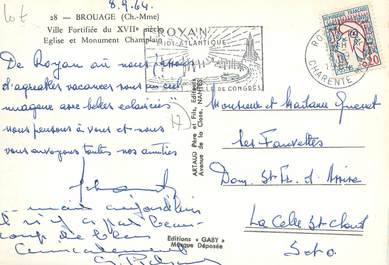 Lot
8.9.64.
28 — BROUAGE (Ch.-Mme)
Ville Fortifiée du XVIIe siècle
Eglise et Monument Champlain
ROYAN
CÔTE-ATLANTIQUE
VILLE DE CONGRÈS
ROYAN
CHARENTE
0,20
De Royan où nous passons
d'agréables vacances sous un ciel
nuageux avec belles éclaircies
nous pensons à vous et nous
vous envoyons toutes nos amitiés
mais aujourd'hui
il n'y a pas beau-
coup de bleu
Amicalement
ARTAUD Père et Fils, Editeurs
Avenue de la Close, NANTES
Editions « GABY »
Marque Déposée
Monsieur et Madame
les Fauvettes
Dom. St. Fr. d'Assise
La Celle St Cloud
S et O.